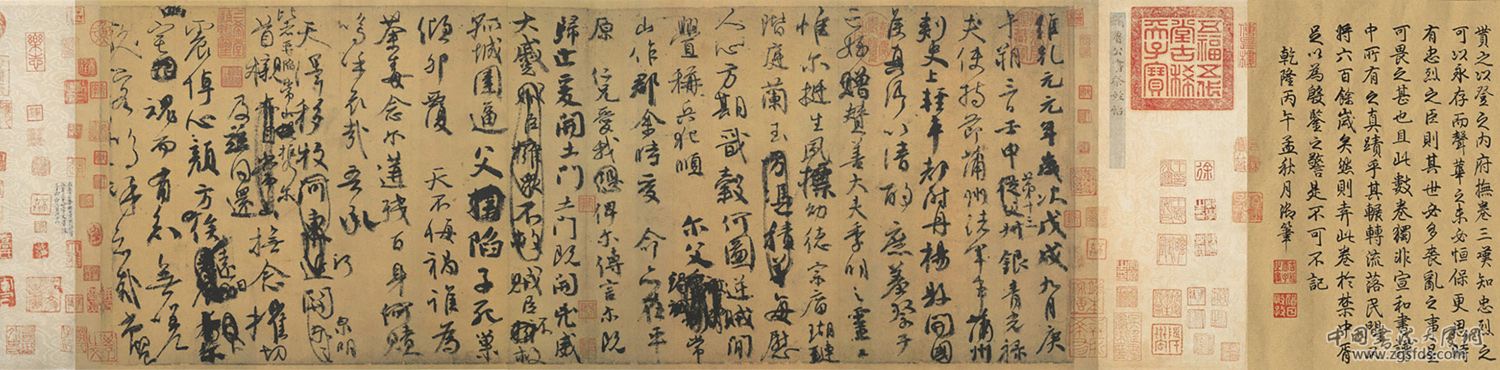 貰之以登之内府撫卷三嘆知忠烈之
可以永存而聲華之未必恒保更思時
有忠烈之臣則其世必多喪亂之事是
可畏之甚也且此數卷獨非宣和書譜
中所有之真蹟乎其輾轉流落民間又
將六百餘歲矣然則弆此卷於禁中胥
足以為殷鑒之警是不可不記
乾隆丙午孟秋月御筆
五福五代
堂古稀
天子寶
顏魯公書祭姪帖
維乾元元年歲次戊戌九月庚
午朔三日壬申第十三叔銀青光祿
夫使持節蒲州諸軍事蒲州
刺史上輕車都尉丹楊縣開國
侯真卿以清酌庶羞祭于
亡姪贈贊善大夫季明之靈曰
惟爾挺生夙標幼德宗廟瑚璉
階庭蘭玉方憑積善每慰
人心方期戩穀何圖逆賊閒
釁稱兵犯順爾父竭誠常
山作郡余時受命亦在平
原仁兄愛我俾爾傳言爾既
歸止爰開土門土門既開凶威
大蹙賊臣擁眾不救賊臣不救
孤城圍逼父陷子死巢
傾卵覆天不悔禍誰為
荼毒念爾遘殘百身何贖
嗚呼哀哉吾承
天澤移牧河關泉明
比者再陷常山攜爾
首櫬及茲同還撫念摧切
震悼心顏方俟遠日
卜爾幽宅魂而有知無嗟
久客嗚呼哀哉尚饗
中国书法大展网
www.zgsfds.com